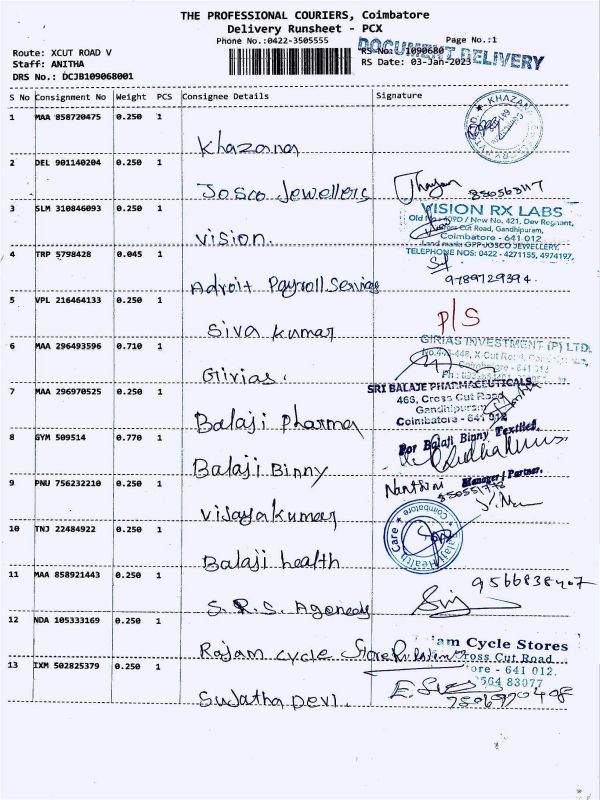 THE PROFESSIONAL COURIERS, Coimbatore
Delivery Runsheet - PCX
Phone No.:0422-3505555
Page No.:1
DOCUMENT DELIVERY
Route: XCUT ROAD V
RS No.: 1090680
Staff: ANITHA
RS Date: 03-Jan-2023
DRS No.: DCJB109068001
S No Consignment No Weight PCS Consignee Details Signature
1 MAA 858720475 0.250 1
Khazana
2 DEL 901140204 0.250 1
Josco Jewellers
3 SLM 310846093 0.250 1
VISION RX LABS
Old No: 409D / New No. 421, Dev Regnant,
Cross Cut Road, Gandhipuram,
Coimbatore - 641 012
Land mark: GPP-JOSCO JEWELLERY.
TELEPHONE NOS: 0422 - 4271155, 4974197,
Vision.
4 TRP 5798428 0.045 1
9789729394.
Advoit Payroll Services
5 VPL 216464133 0.250 1
P/S
Siva kumar
6 MAA 296493596 0.710 1
GIRIAS INVESTMENT (P) LTD.
Girias.
7 MAA 296970525 0.250 1
SRI BALAJE PHARMACEUTICALS
466, Cross Cut Road
Gandhipuram
Coimbatore - 641 012
Balaji Pharma
8 GYM 509514 0.770 1
For Balaji Binny Textiles,
Manager / Partner.
Balaji Binny
9 PNU 756232210 0.250 1
Vijayakumar
10 TNJ 22484922 0.250 1
Balaji Health Care * Coimbatore *
Balaji health
11 MAA 858921443 0.250 1
S.R.S. Agencies
12 NDA 105333169 0.250 1
Cycle Stores
Cross Cut Road
- 641 012.
564 83077
Rajam cycle Store
13 IXM 502825379 0.250 1
Sujatha Devi.